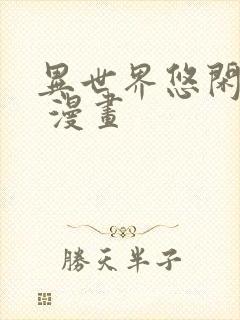 異世界悠閑
漫畫
勝天半子